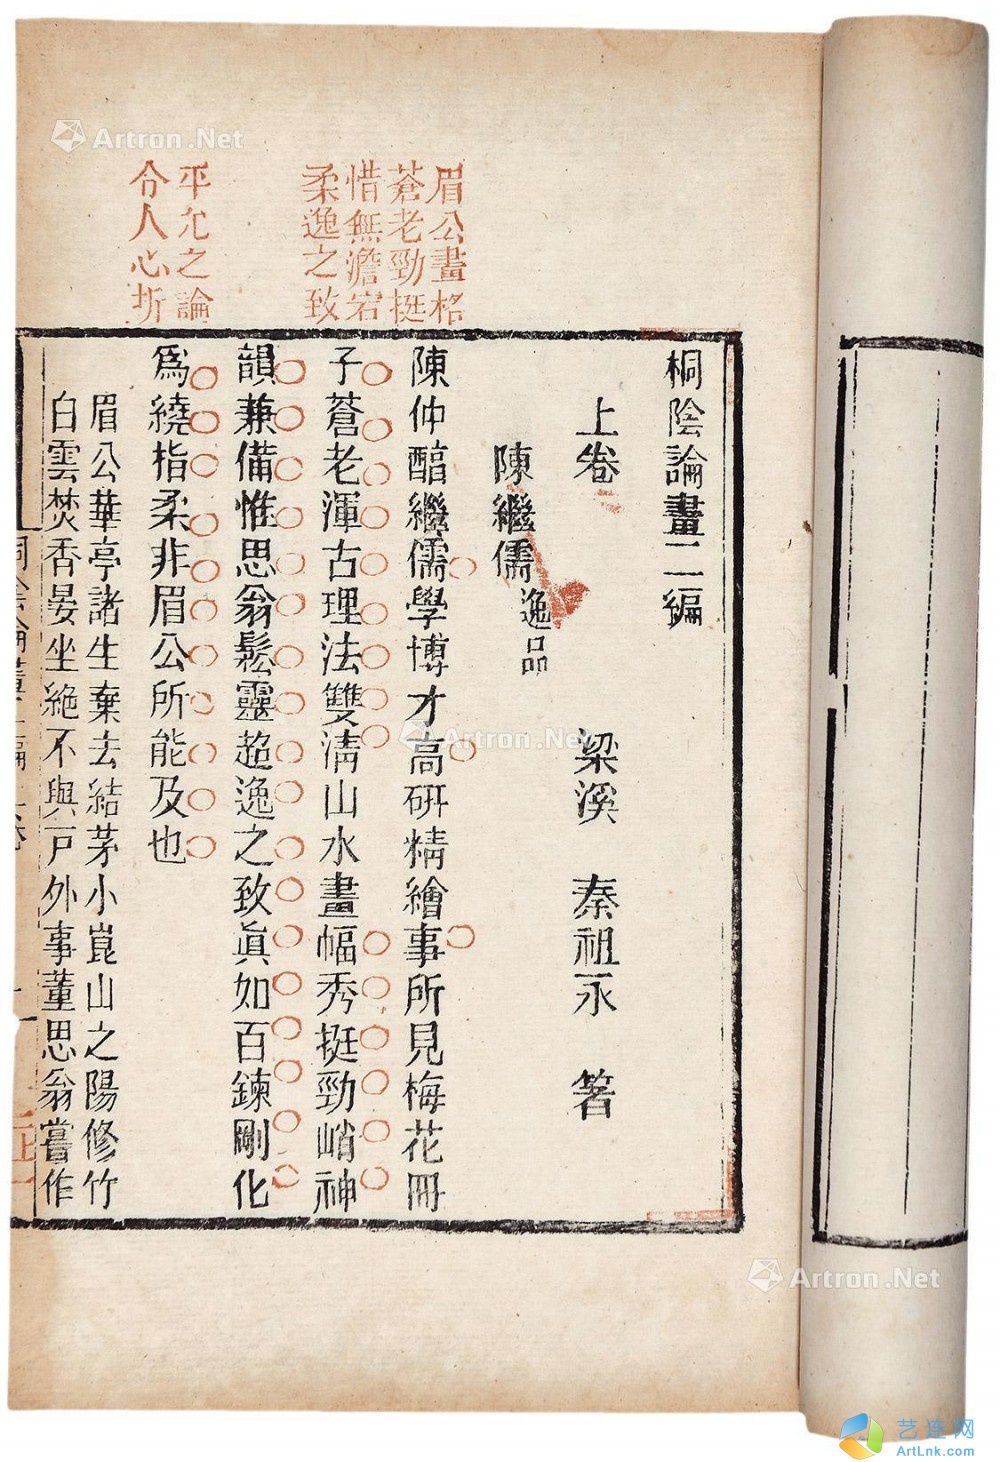 桐陰論畫二編
上卷
梁溪 秦祖永 箸
陳繼儒 逸品
陳仲醇繼儒學博才高硏精繪事所見梅花冊
子蒼老渾古理法雙淸山水畫幅秀挺勁峭神
韻兼備惟思翁鬆靈超逸之致眞如百鍊剛化
爲繞指柔非眉公所能及也
眉公華亭諸生棄去結茅小崑山之陽修竹
白雲焚香晏坐絶不與戶外事董思翁嘗作
眉公畫格
蒼老勁挺
惜無澹宕
柔逸之致
平允之論
令人心折
Artron.Net
Artron.Net
Artron.Net
艺连网
ArtLnk.com